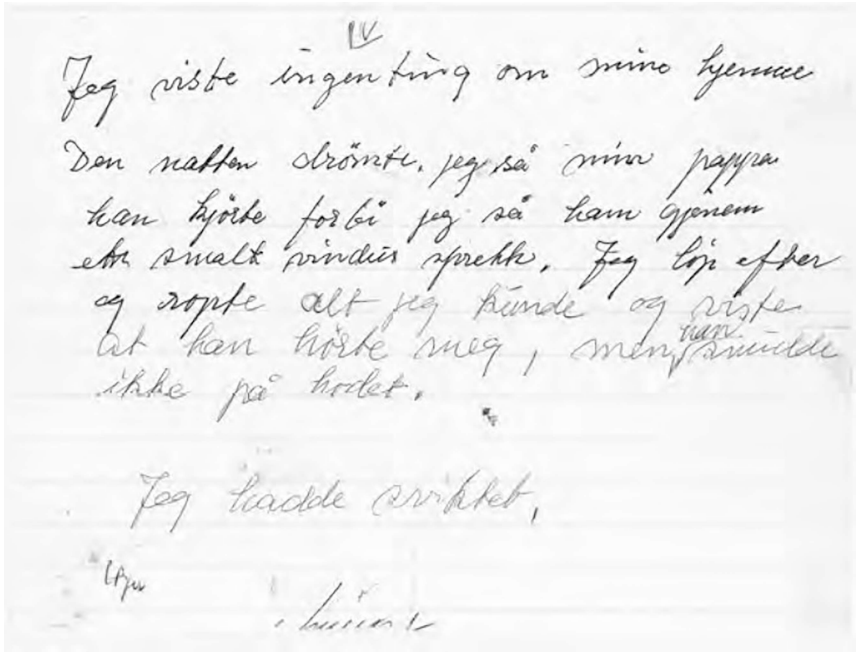 IV
Jeg viste ingenting om mine hjemme
Den natten drömte. jeg så min pappa
han kjörte forbi jeg så ham gjenem
smalt vindus sprekk. Jeg löp efter
og ropte alt jeg kunde og viste
at han hörte meg, men han snudde
ikke på hodet.
Jeg hadde sviktet,